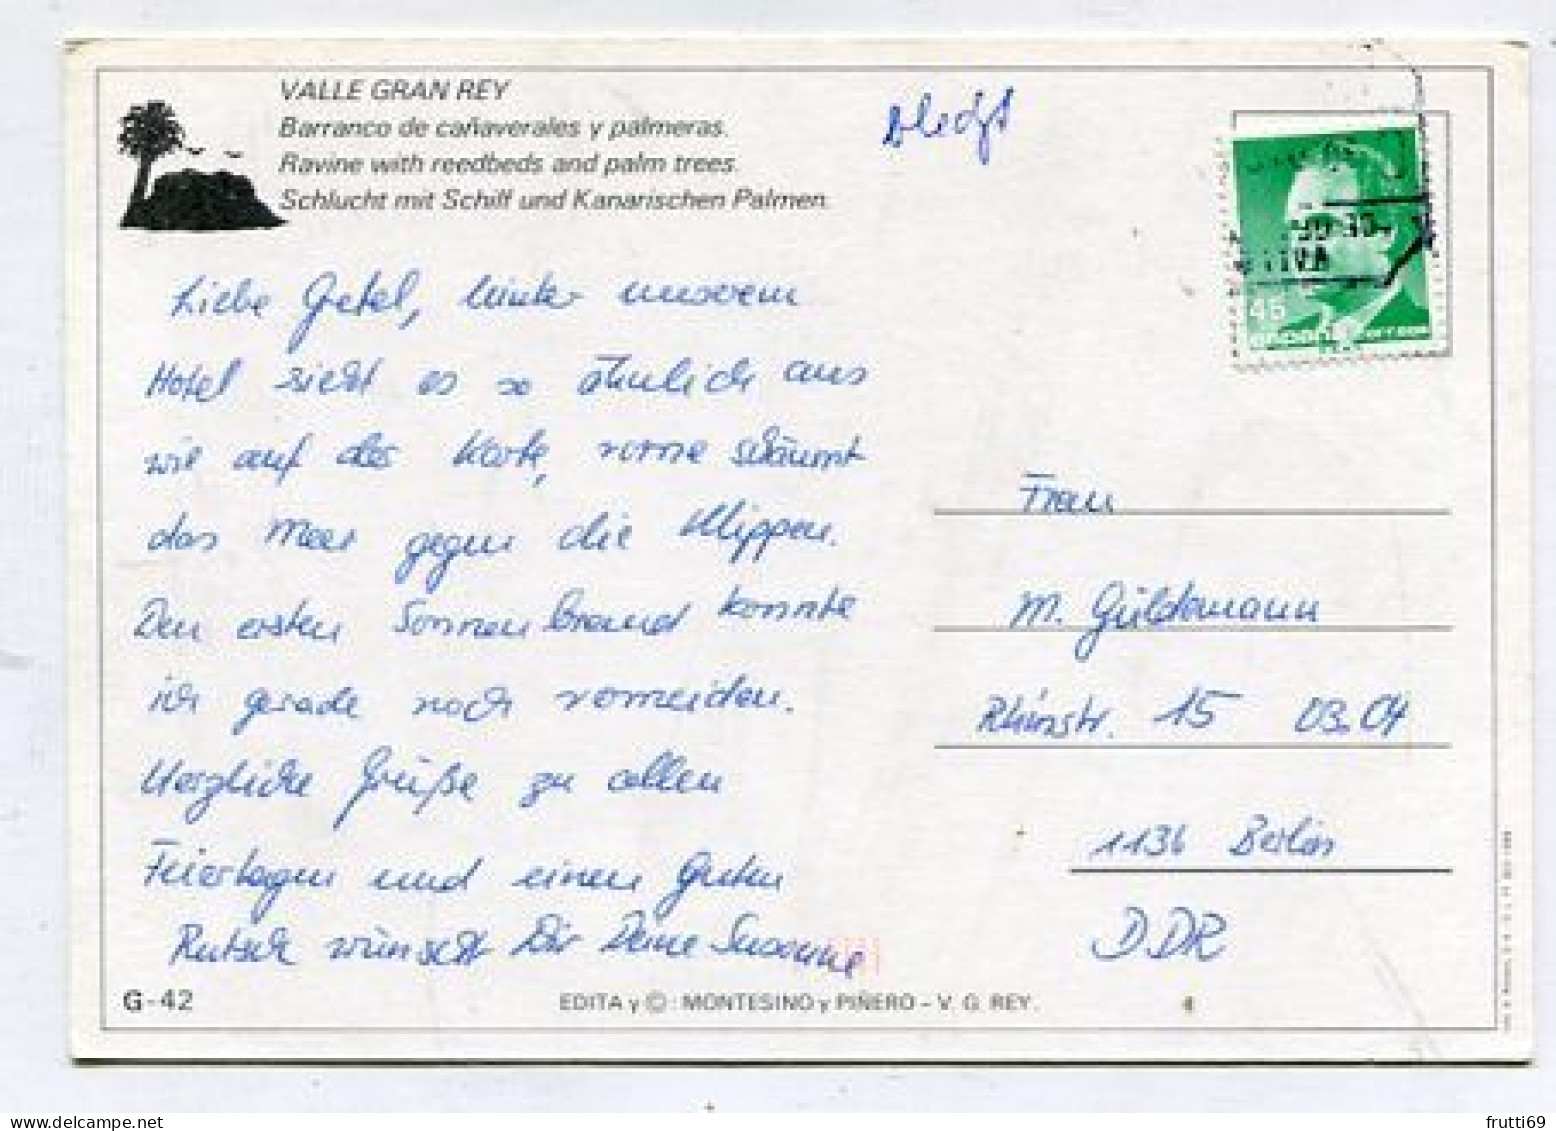 VALLE GRAN REY
Barranco de cañaverales y palmeras.
Ravine with reedbeds and palm trees.
Schlucht mit Schilf und Kanarischen Palmen.
Liebe Getel, hinter unserem
Hotel sieht es so ähnlich aus
wie auf der Karte, vorne schäumt
das Meer gegen die Klippen.
Den ersten Sonnenbrand konnte
ich gerade noch vermeiden.
Herzliche Grüße zu allen
Feiertagen und einen Guten
Rutsch wünscht Dir Deine Susanne
45
Frau
M. Güldemann
Rhinstr. 15 03.04
1136 Berlin
DDR
G-42
EDITA y © : MONTESINO y PIÑERO – V. G. REY.
4
frutti69